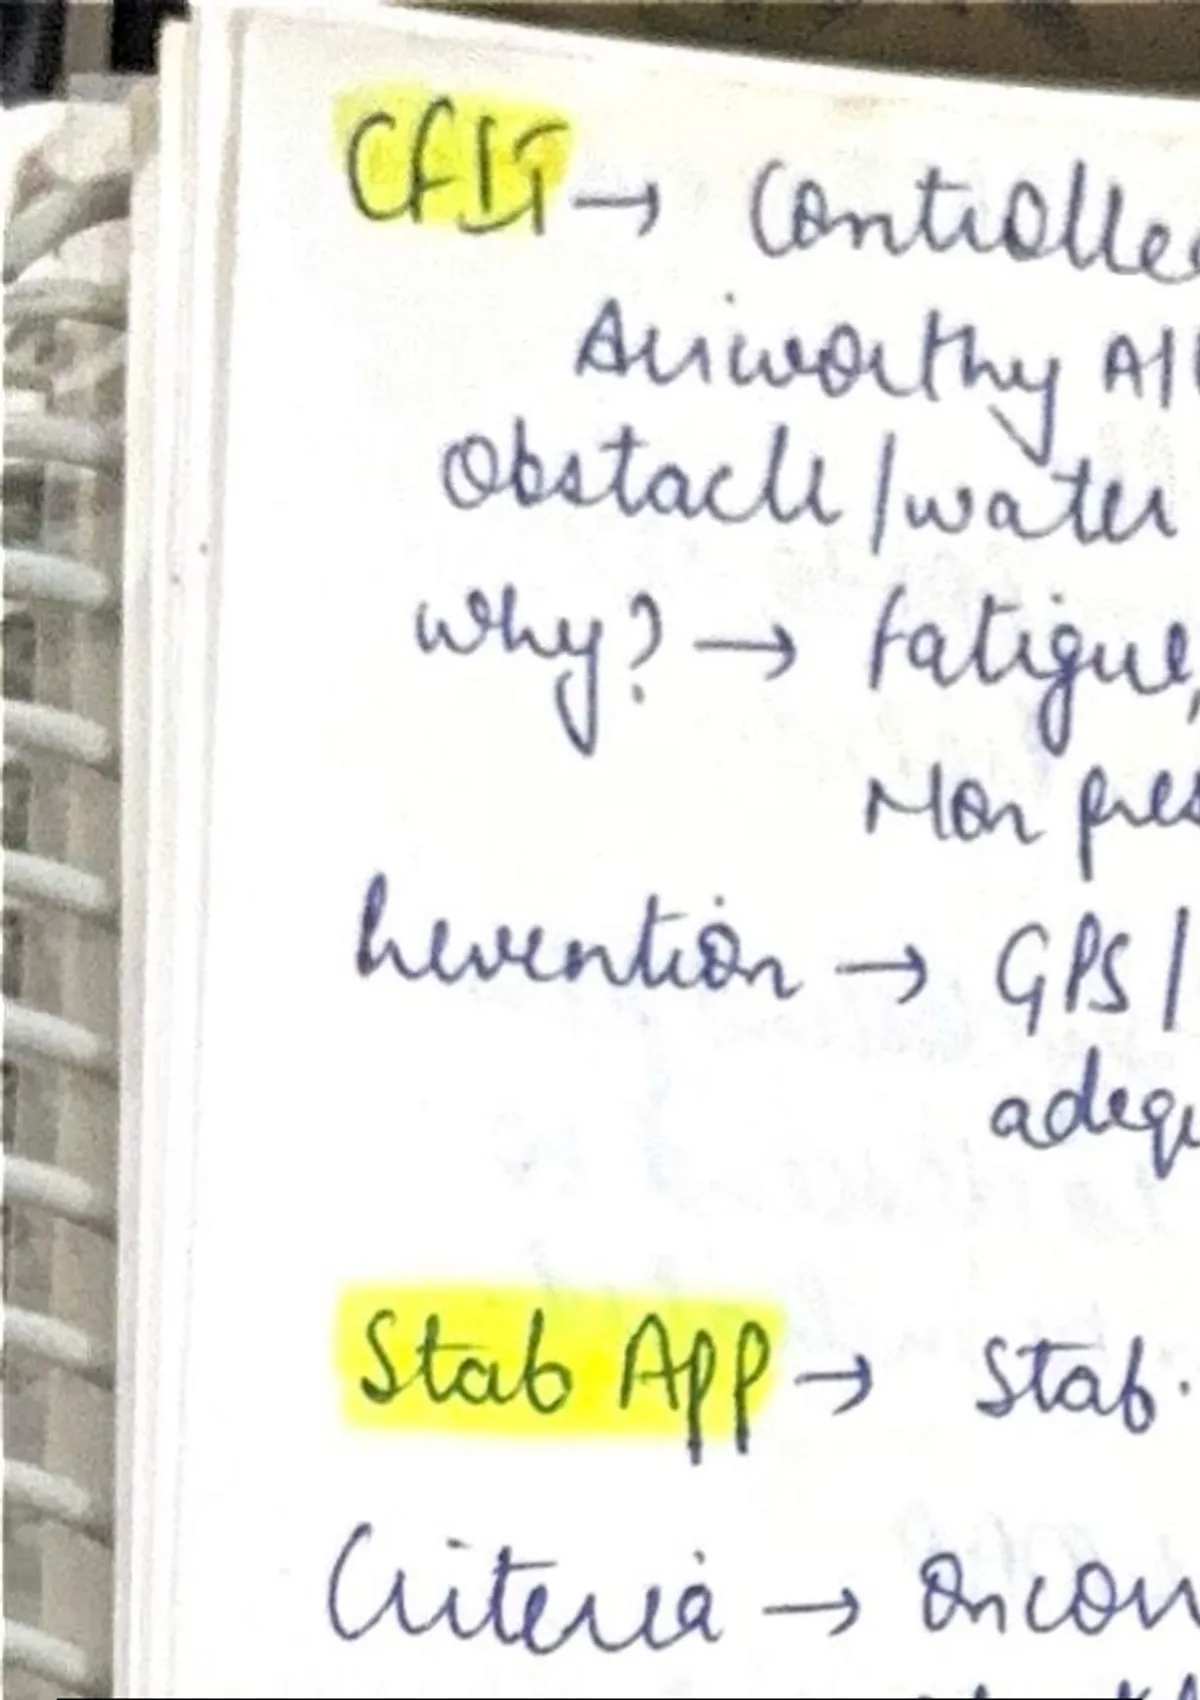 CFIT → Controlle
Airworthy A/
Obstacle / water
why? → fatigue,
Prevention → GPS /
adeq
Stab App → Stab.
Criteria → On cou